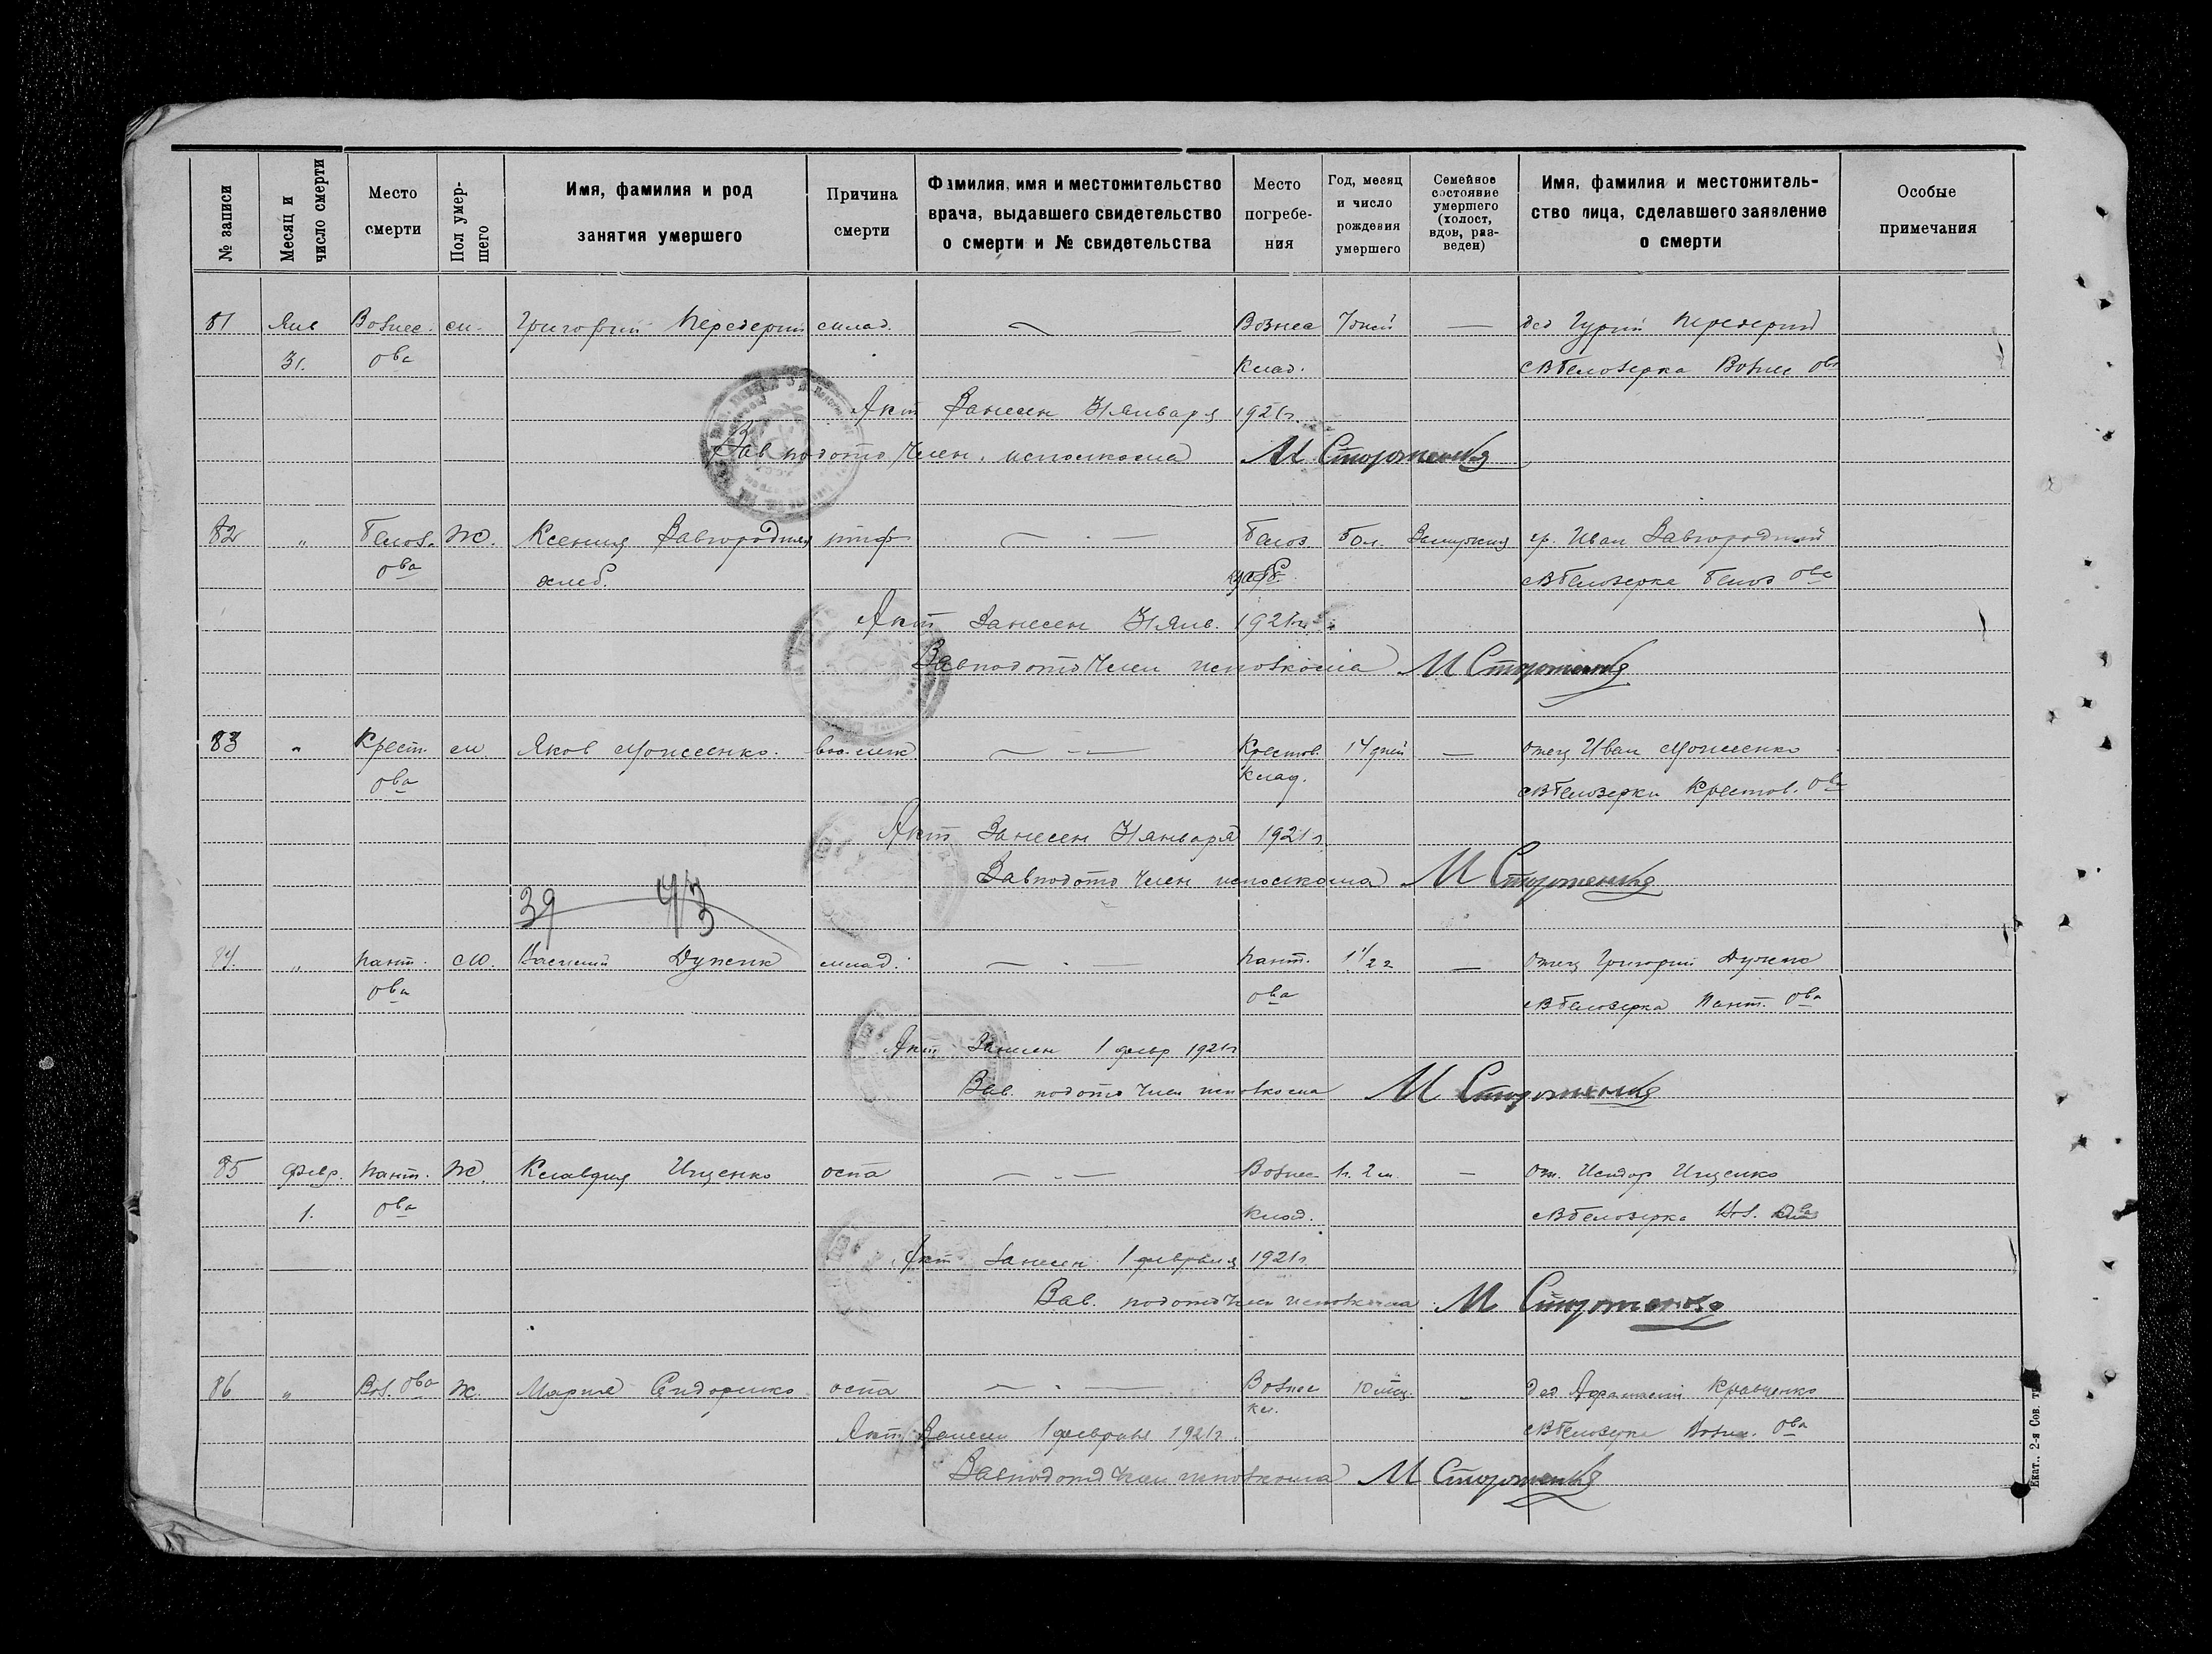 № записи
Месяц и число смерти
Место смерти
Пол умер-шего
Имя, фамилия и род занятия умершего
Причина смерти
Фамилия, имя и местожительство врача, выдавшего свидетельство о смерти и № свидетельства
Место погребе-ния
Год, месяц и число рождения умершего
Семейное состояние умершего (холост, вдов, раз-веден)
Имя, фамилия и местожитель-ство лица, сделавшего заявление о смерти
Особые примечания
81 Янв Вознес. м. Григорий Передерий млад. — Вознес 7 дней — дед Гурий Передерий
31. ова клад. с В Белозерка Вознес ова
Акт Занесен 31 Января 1921 г.
Зав подотд Член. исполкома М Стороженко
82 " Белоз. Ж. Ксения Завгородняя тиф — Белоз 60 л. Замужняя гр. Иван Завгородний
ова хлеб. с В Белозерка Белоз ова
Акт Занесен 31 Янв. 1921 г.
Завподотд Член исполкома М Стороженко
83 " Крест. м. Яков — Крестов. 14 дней — Отец Иван
ова клад. с В Белозерки Крестов. ова
Акт Занесен 31 января 1921 г.
Завподотд Член исполкома М Стороженко
39 43
84. " Пант. м. Василий млад. — Пант. 1 1/2 г — Отец Григорий
ова ова с В Белозерка Пант. ова
Акт Занесен 1 февр 1921 г
Зав. подотд Член исполкома М Стороженко
85 февр. Пант. Ж. Клавдия Ищенко оспа — Вознес 1 г. 2 м. — От. Исидор Ищенко
1. ова клад. с В Белозерка
Акт Занесен 1 февраля 1921 г.
Зав. подотд Член исполкома М Стороженко
86 " Воз. ова Ж. Мария Сидоренко оспа — Вознес 10 мец. — дед Афанасий Кравченко
кл. с В Белозерка Вознес. ова
Акт Занесен 1 февраля 1921 г.
Завподотд Член исполкома М Стороженко
Екат., 2-я Сов. т